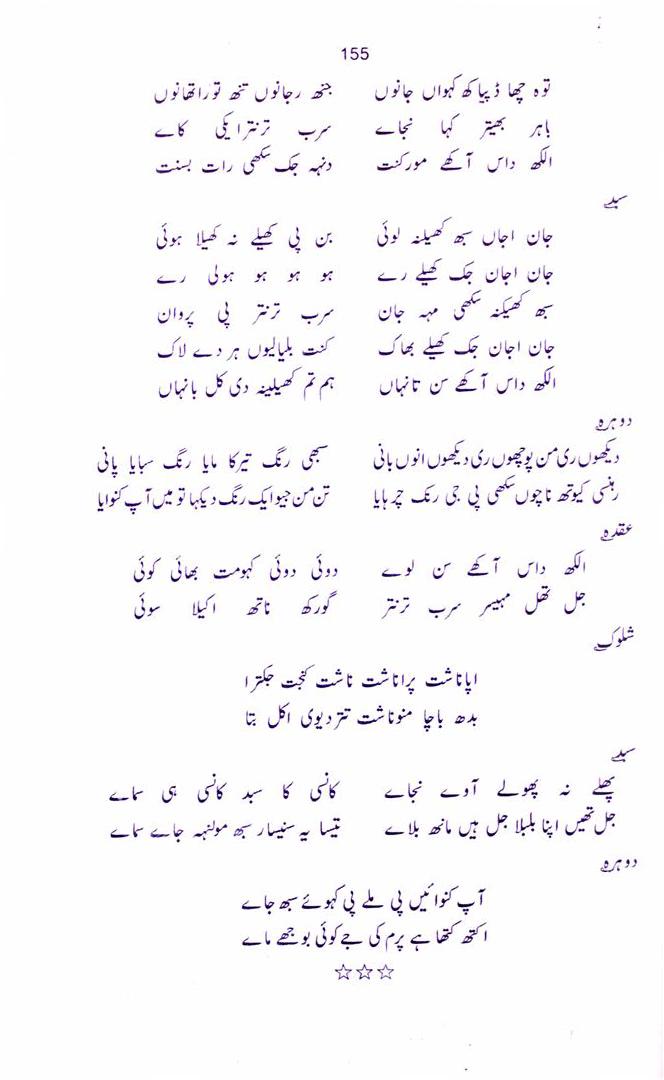 155
توہ چھا ڈپیا کھ کہواں جانوں جتھ رجانوں تتھ تورا تھانوں
باہر بھیتر کہا نجاے سرب ترنترا یکی کاے
الکھ داس آکھے مورکنت دنہہ جک سکھی رات بسنت
سبدے
جان اجاں سبھ کھیلنہ لوئی بن پی کھیلے نہ کھیلا ہوئی
جان اجان جک کھیلے رے ہو ہو ہو ہولی رے
سبھ کھیکنہ سکھی مہہ جان سرب ترنتر پی پروان
جان اجان جک کھیلے بھاک کنت بلیالیوں ہر دے لاک
الکھ داس آکھے سن تانہاں ہم تم کھیلینہ دی کل بانہاں
دوہرہ
دیکھوں ری من پوچھوں ری دیکھوں انوں بانی سبھی رنگ تیرکا مایا رنگ سبایا پانی
رہنسی کیوتھ ناچوں سکھی پی جی رنک چرہایا تن من جیو ایک رنگ دیکہا تو میں آپ کنوایا
عقدہ
الکھ داس آکھے سن لوے دوئی دوئی کہومت بھائی کوئی
جل تھل مہیسر سرب ترنتر گورکھ ناتھ اکیلا سوئی
شلوک
اپاناشت پراناشت ناشت کنجت جکترا
بدھ باچا منوناشت تتردیوی اکل بتا
سبدے
پھلے نہ پھولے آوے نجاے کانسی کا سبد کانسی ہی سماے
جل تھیں اپنا بلبلا جل ہیں مانھ بلاے تیسا یہ سنیسار سبھ مولنہہ جاے سماے
دوہرہ
آپ کنوائیں پی ملے پی کہوئے سبھ جاے
اکتھ کتھا ہے پرم کی جے کوئی بوجھے ماے
☆☆☆